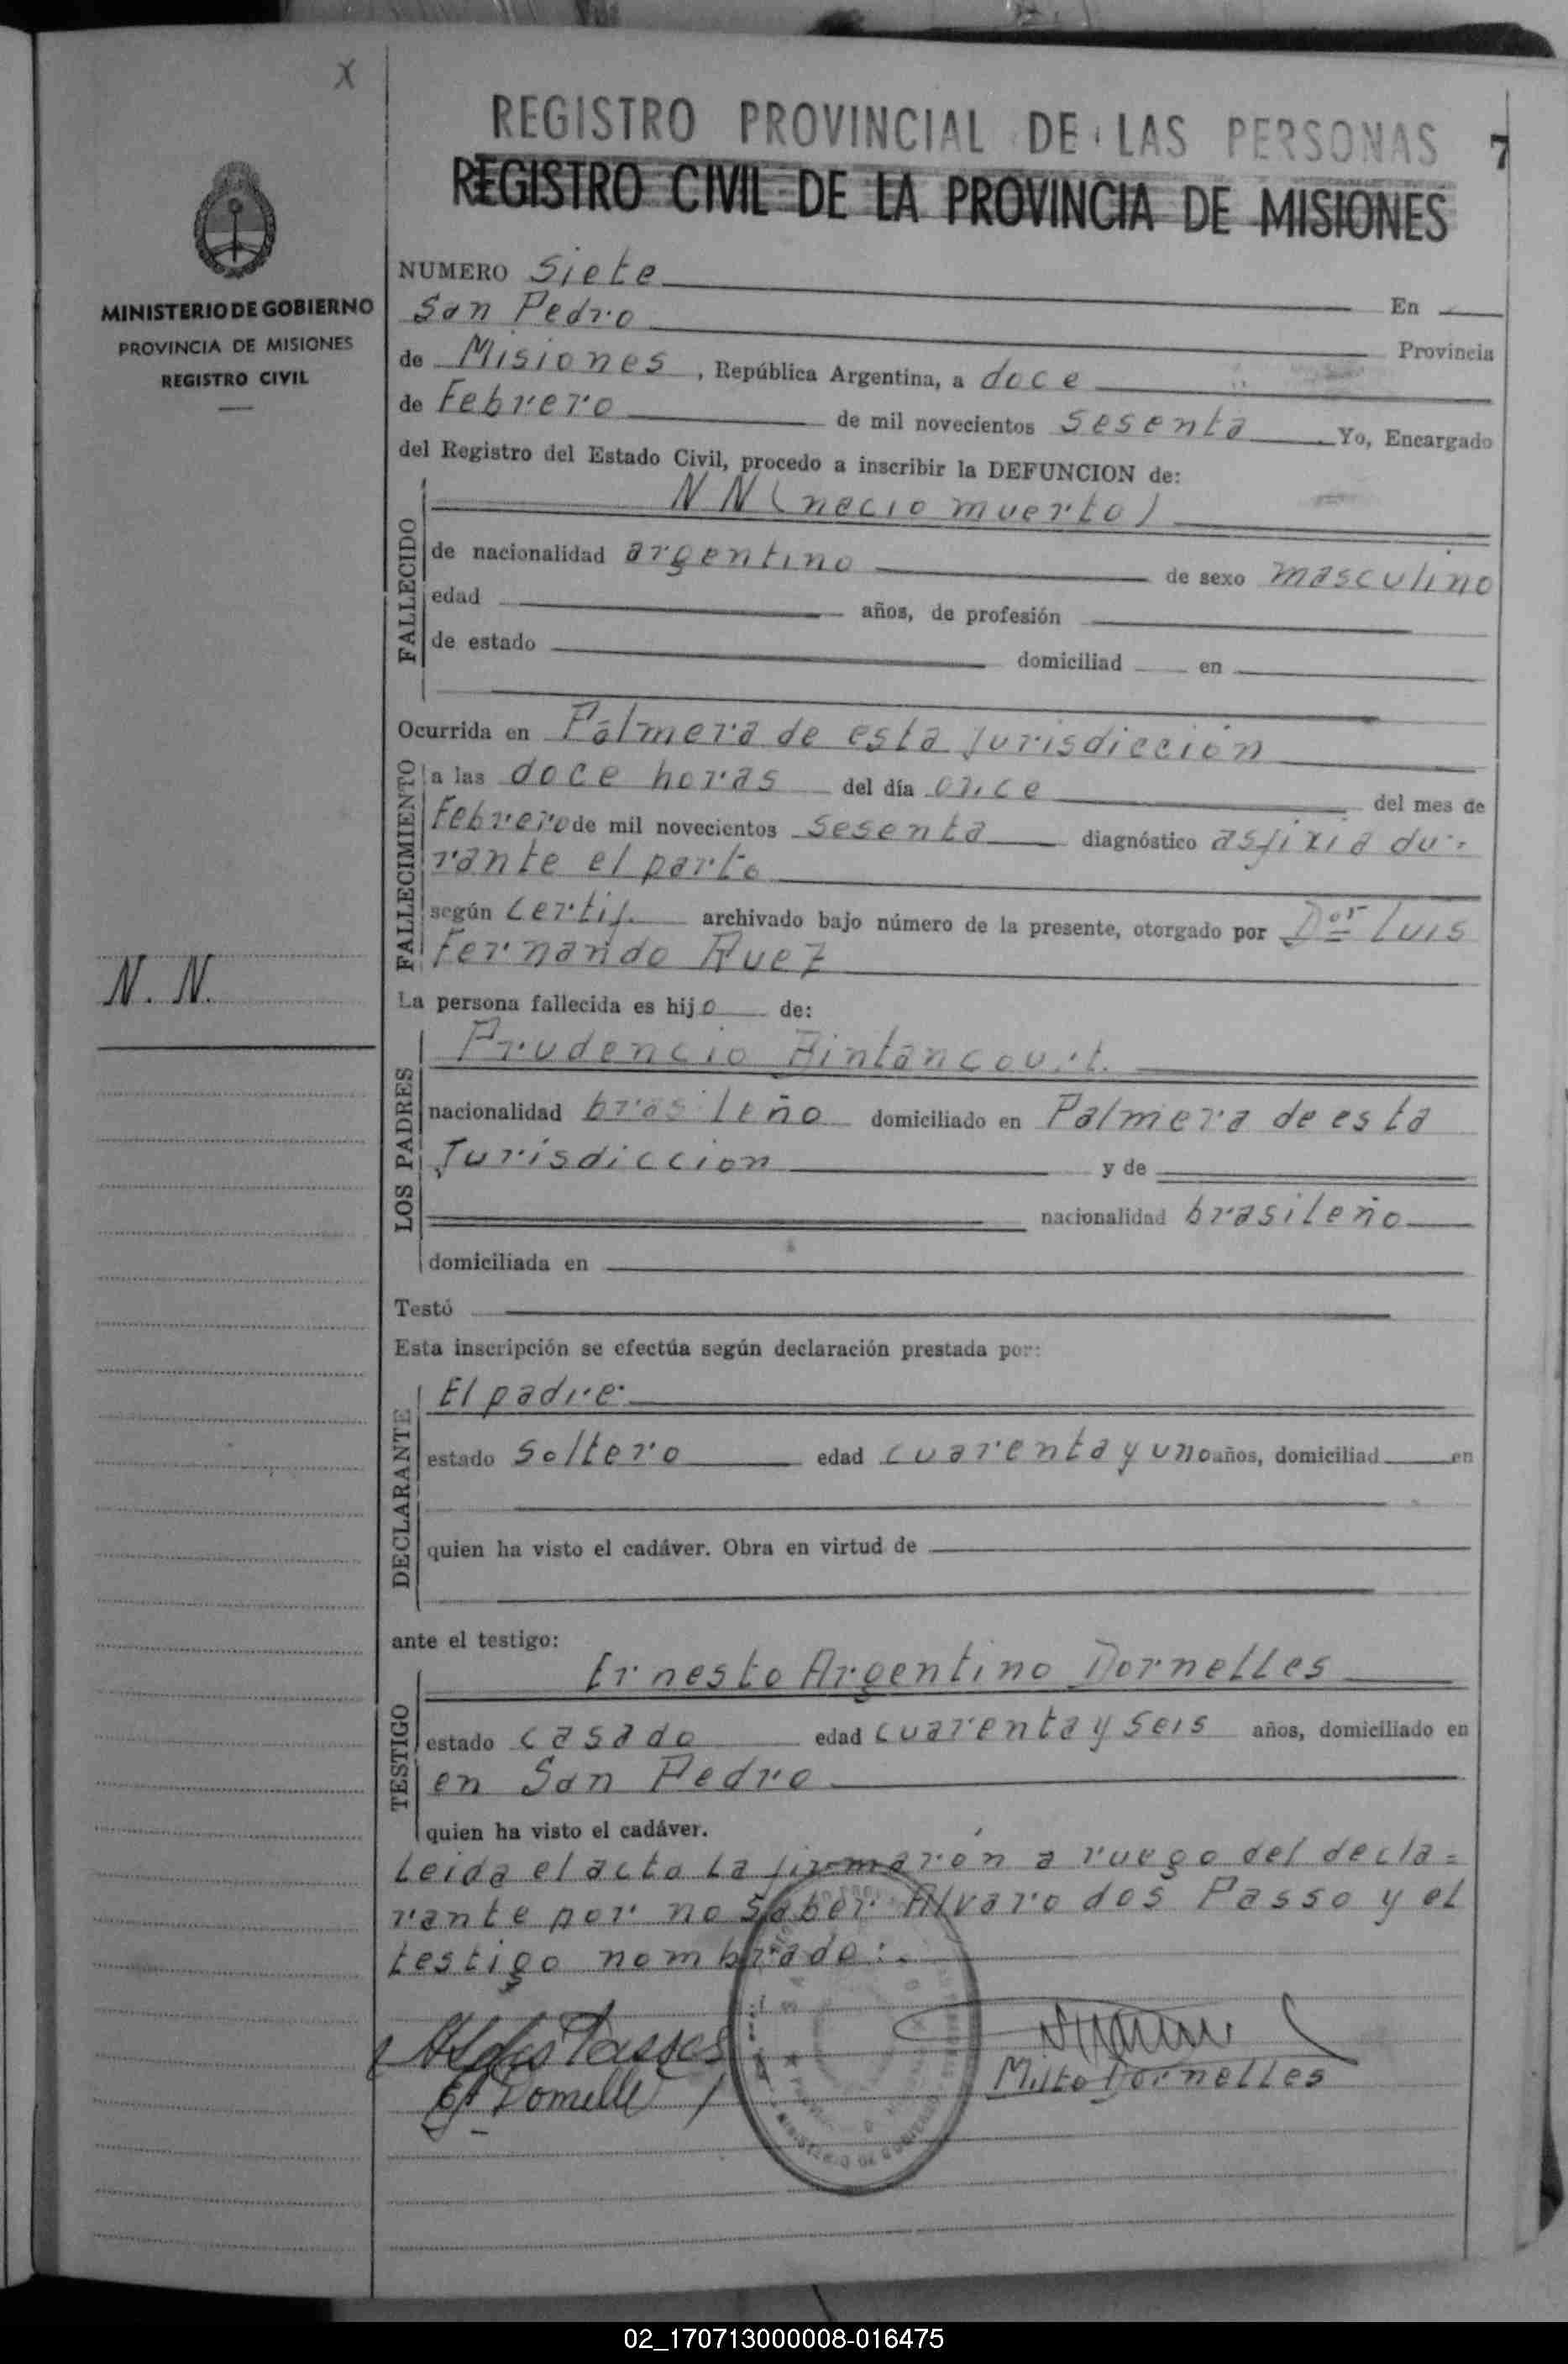 X
REGISTRO PROVINCIAL DE LAS PERSONAS
7
REGISTRO CIVIL DE LA PROVINCIA DE MISIONES
MINISTERIO DE GOBIERNO
PROVINCIA DE MISIONES
REGISTRO CIVIL
NUMERO Siete En
San Pedro Provincia
de Misiones, República Argentina, a doce
de Febrero de mil novecientos sesenta Yo, Encargado
del Registro del Estado Civil, procedo a inscribir la DEFUNCION de:
FALLECIDO
N N (necio muerto)
de nacionalidad argentino de sexo masculino
edad años, de profesión
de estado domiciliad en
Ocurrida en Palmera de esta jurisdicción
FALLECIMIENTO
a las doce horas del día once del mes de
Febrero de mil novecientos sesenta diagnóstico asfixia du-
rante el parto
según Certif. archivado bajo número de la presente, otorgado por Dor Luis
Fernando Ruez
N. N.
La persona fallecida es hijo de:
LOS PADRES
Prudencio Bintancourt.
nacionalidad brasileño domiciliado en Palmera de esta
Jurisdiccion y de
nacionalidad brasileño
domiciliada en
Testó
Esta inscripción se efectúa según declaración prestada por:
DECLARANTE
El padre
estado Soltero edad cuarenta y uno años, domiciliad en
quien ha visto el cadáver. Obra en virtud de
ante el testigo:
TESTIGO
Ernesto Argentino Dornelles
estado casado edad cuarenta y seis años, domiciliado en
en San Pedro
quien ha visto el cadáver.
Leida el acta la firmarón a ruego del decla=
rante por no saber Alvaro dos Passo y el
testigo nombrado:.
Milto Dornelles
MINISTERIO DE GOBIERNO
02_170713000008-016475